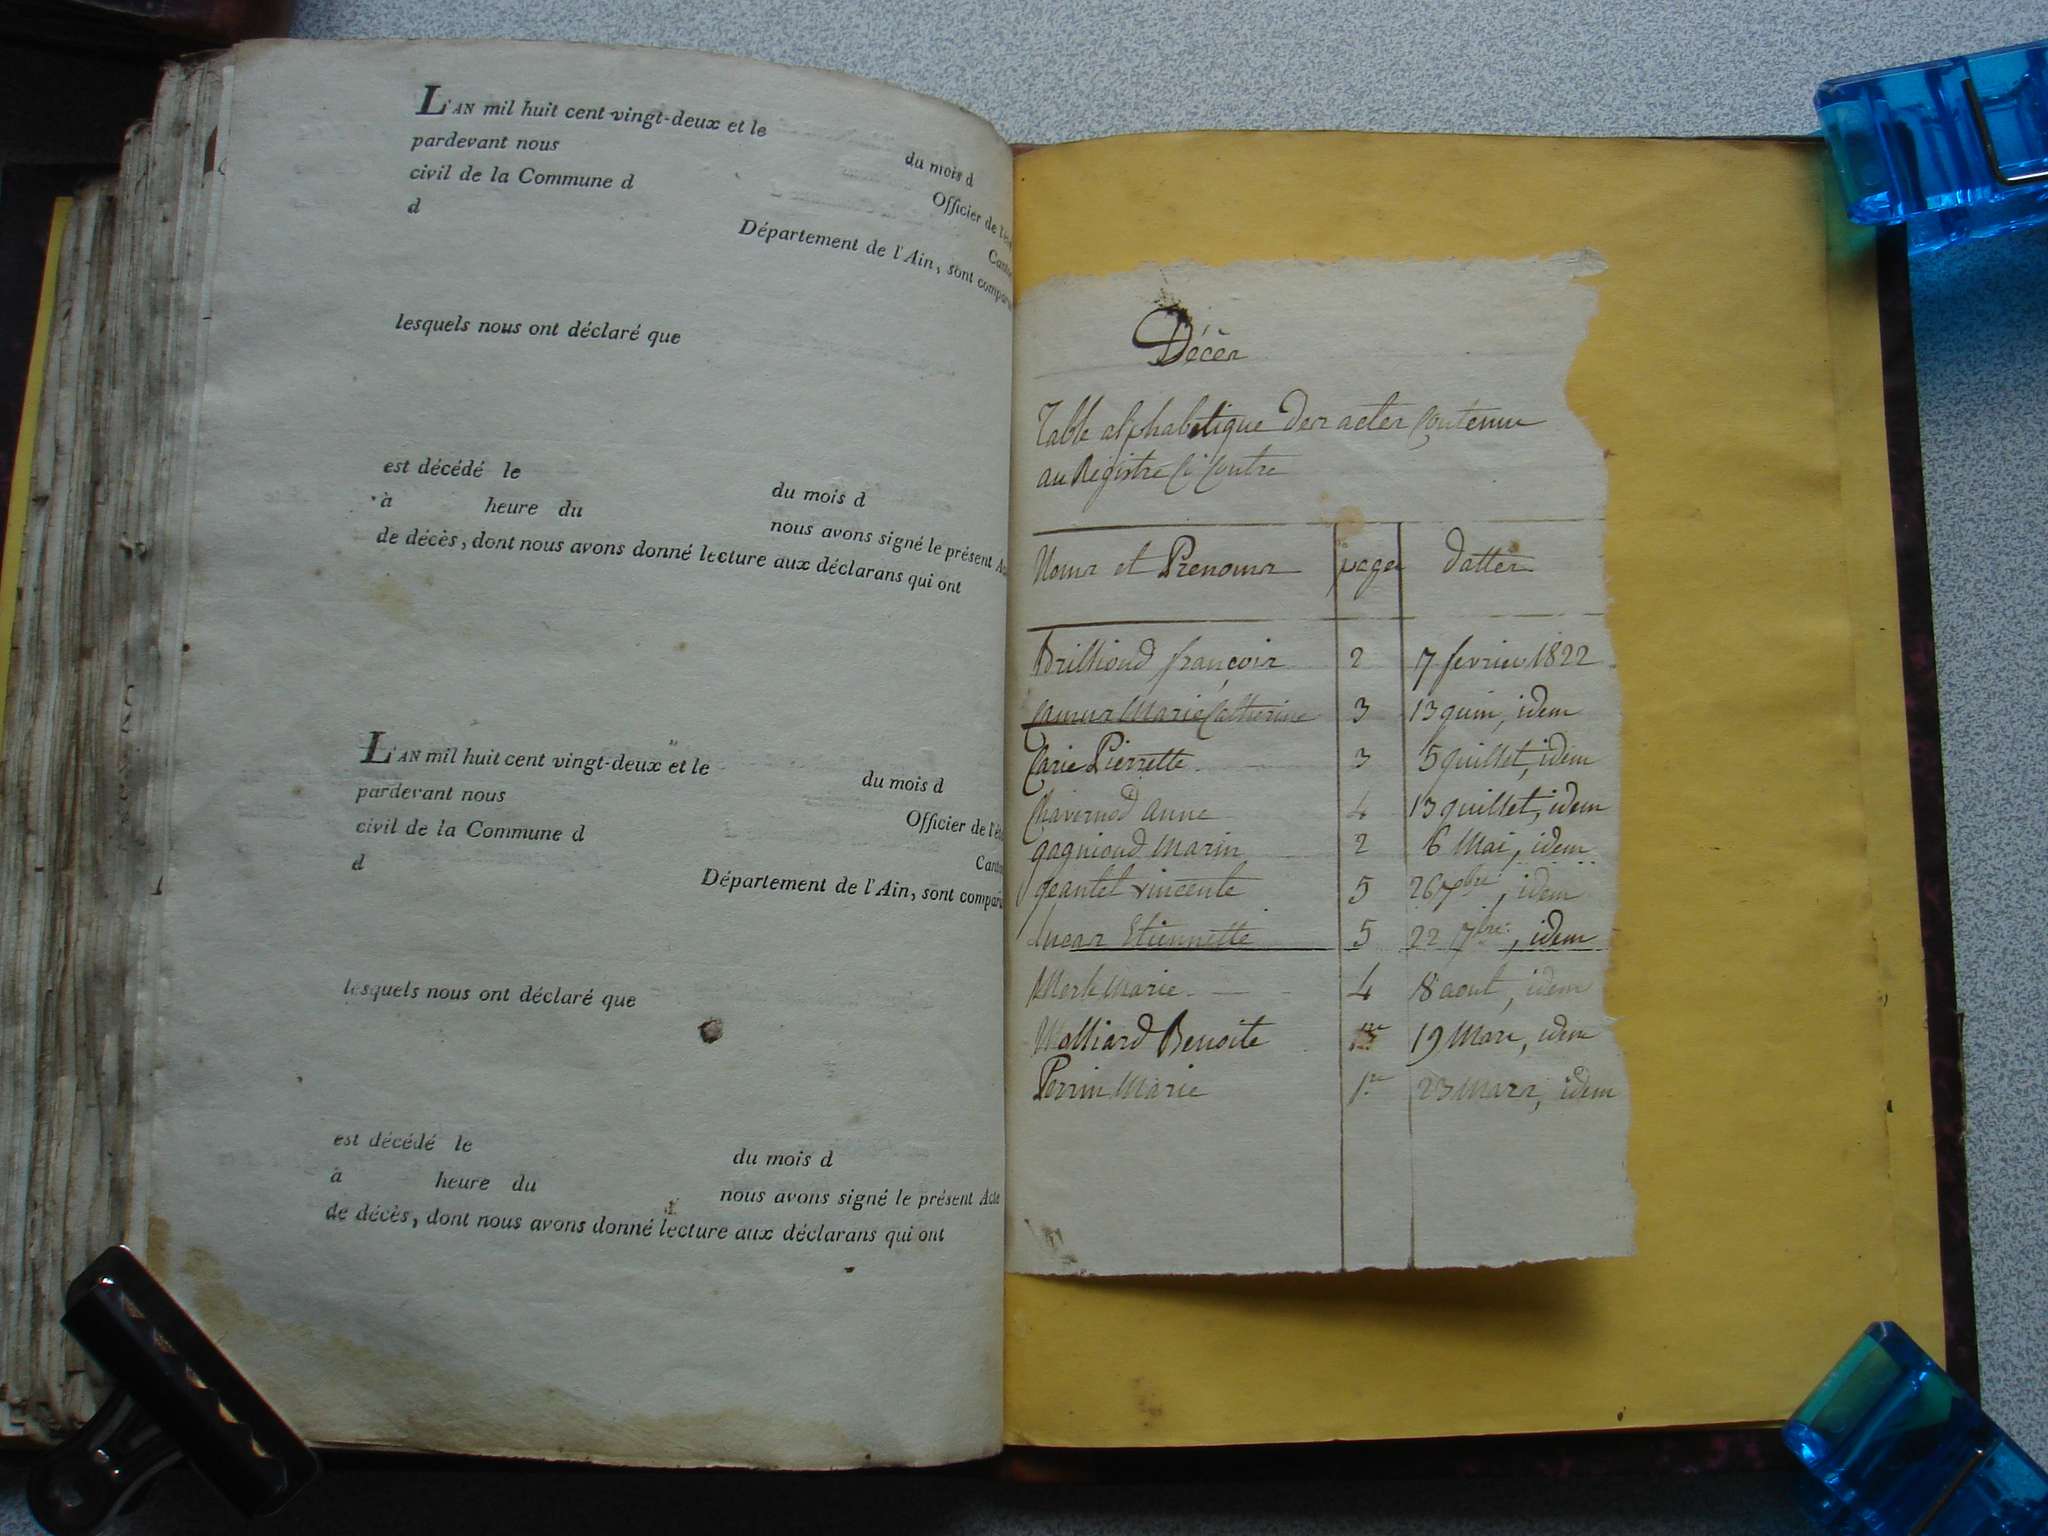 L'AN mil huit cent vingt-deux et le du mois d
pardevant nous Officier de l'éta
civil de la Commune d Canto
d Département de l'Ain, sont comparu
lesquels nous ont déclaré que
est décédé le du mois d
à heure du nous avons signé le présent Ac
de décès, dont nous avons donné lecture aux déclarans qui ont
L'AN mil huit cent vingt-deux et le du mois d
pardevant nous Officier de l'éta
civil de la Commune d Canto
d Département de l'Ain, sont compara
lesquels nous ont déclaré que
est décédé le du mois d
à heure du nous avons signé le présent Acte
de décès, dont nous avons donné lecture aux déclarans qui ont
Décès
Table alphabetique des actes Contenus
au Registre Ci Contre
Noms et Prenoms pages dattes
Brilliond françois 2 7 fevrier 1822
Marie Catherine 3 13 juin, idem
Carie Pierrette 3 5 juillet, idem
Chavernod anne 4 13 juillet, idem
gagnioud Marin 2 6 Mai, idem
jeantet vincente 5 26 7bre, idem
lucas Etiennette 5 22 7bre, idem
Merle Marie 4 18 aout, idem
Molliard Benoite 1re 19 Mars, idem
Perrin Marie 1re 23 Mars, idem